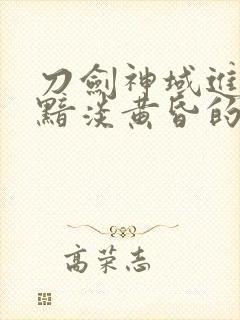 刀劍神域進
黯淡黃昏的
高荣志